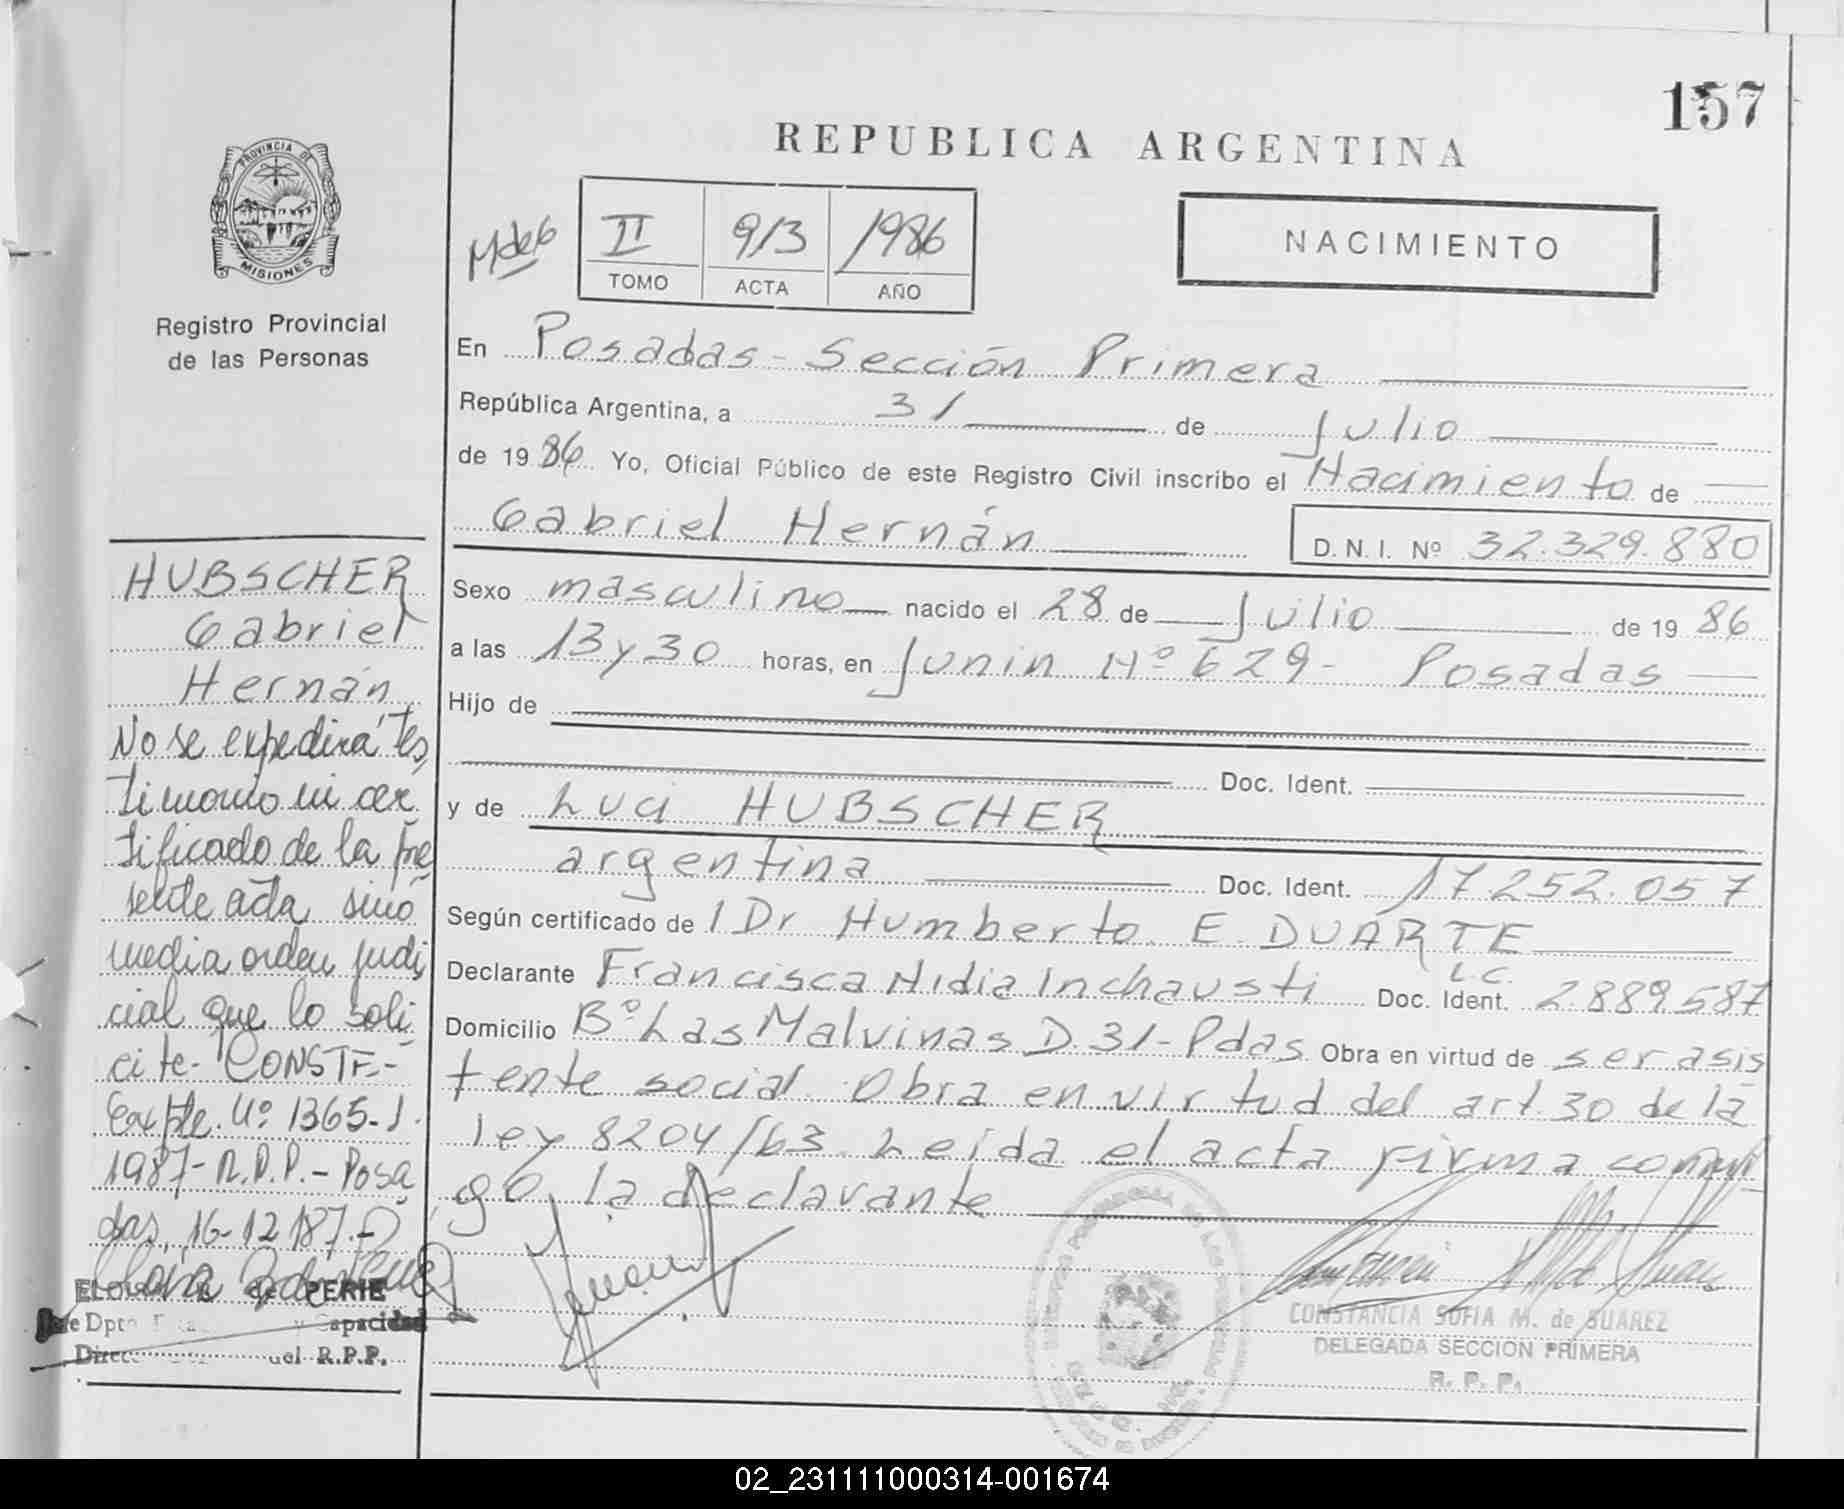 157
REPUBLICA ARGENTINA
PROVINCIA DE
MISIONES
Registro Provincial
de las Personas
II 913 1986
TOMO ACTA AÑO
NACIMIENTO
En Posadas - Sección Primera
República Argentina, a 31 de Julio
de 19 86 Yo, Oficial Público de este Registro Civil inscribo el Nacimiento de
Gabriel Hernán D.N.I. Nº 32.329.880
Sexo masculino nacido el 28 de Julio de 19 86
a las 13 y 30 horas, en Junin Nº 629 - Posadas
Hijo de
Doc. Ident.
y de Luci HUBSCHER
argentina Doc. Ident. 17.252.057
Según certificado de l Dr Humberto E. DUARTE
Declarante Francisca Nidia Inchausti Doc. Ident. L.C. 2.889.587
Domicilio Bº Las Malvinas D.31 - Pdas Obra en virtud de ser asis
tente social. Obra en virtud del art. 30 de la
ley 8204/63. Leída el acta firma conmi
go la declarante
CONSTANCIA SOFIA M. de SUAREZ
DELEGADA SECCION PRIMERA
R. P. P.
HUBSCHER
Gabriel
Hernán
No se expedirá tes
timonio ni cer
tificado de la pre
sente acta sino
media orden judi
cial que lo soli
cite - CONSTE -
Expte. Nº 1365-J.
1987 - R.P.P. - Posa
das, 16-12-187.-
de PERIE
Dpto. y Capacidad
del R.P.P.
02_231111000314-001674